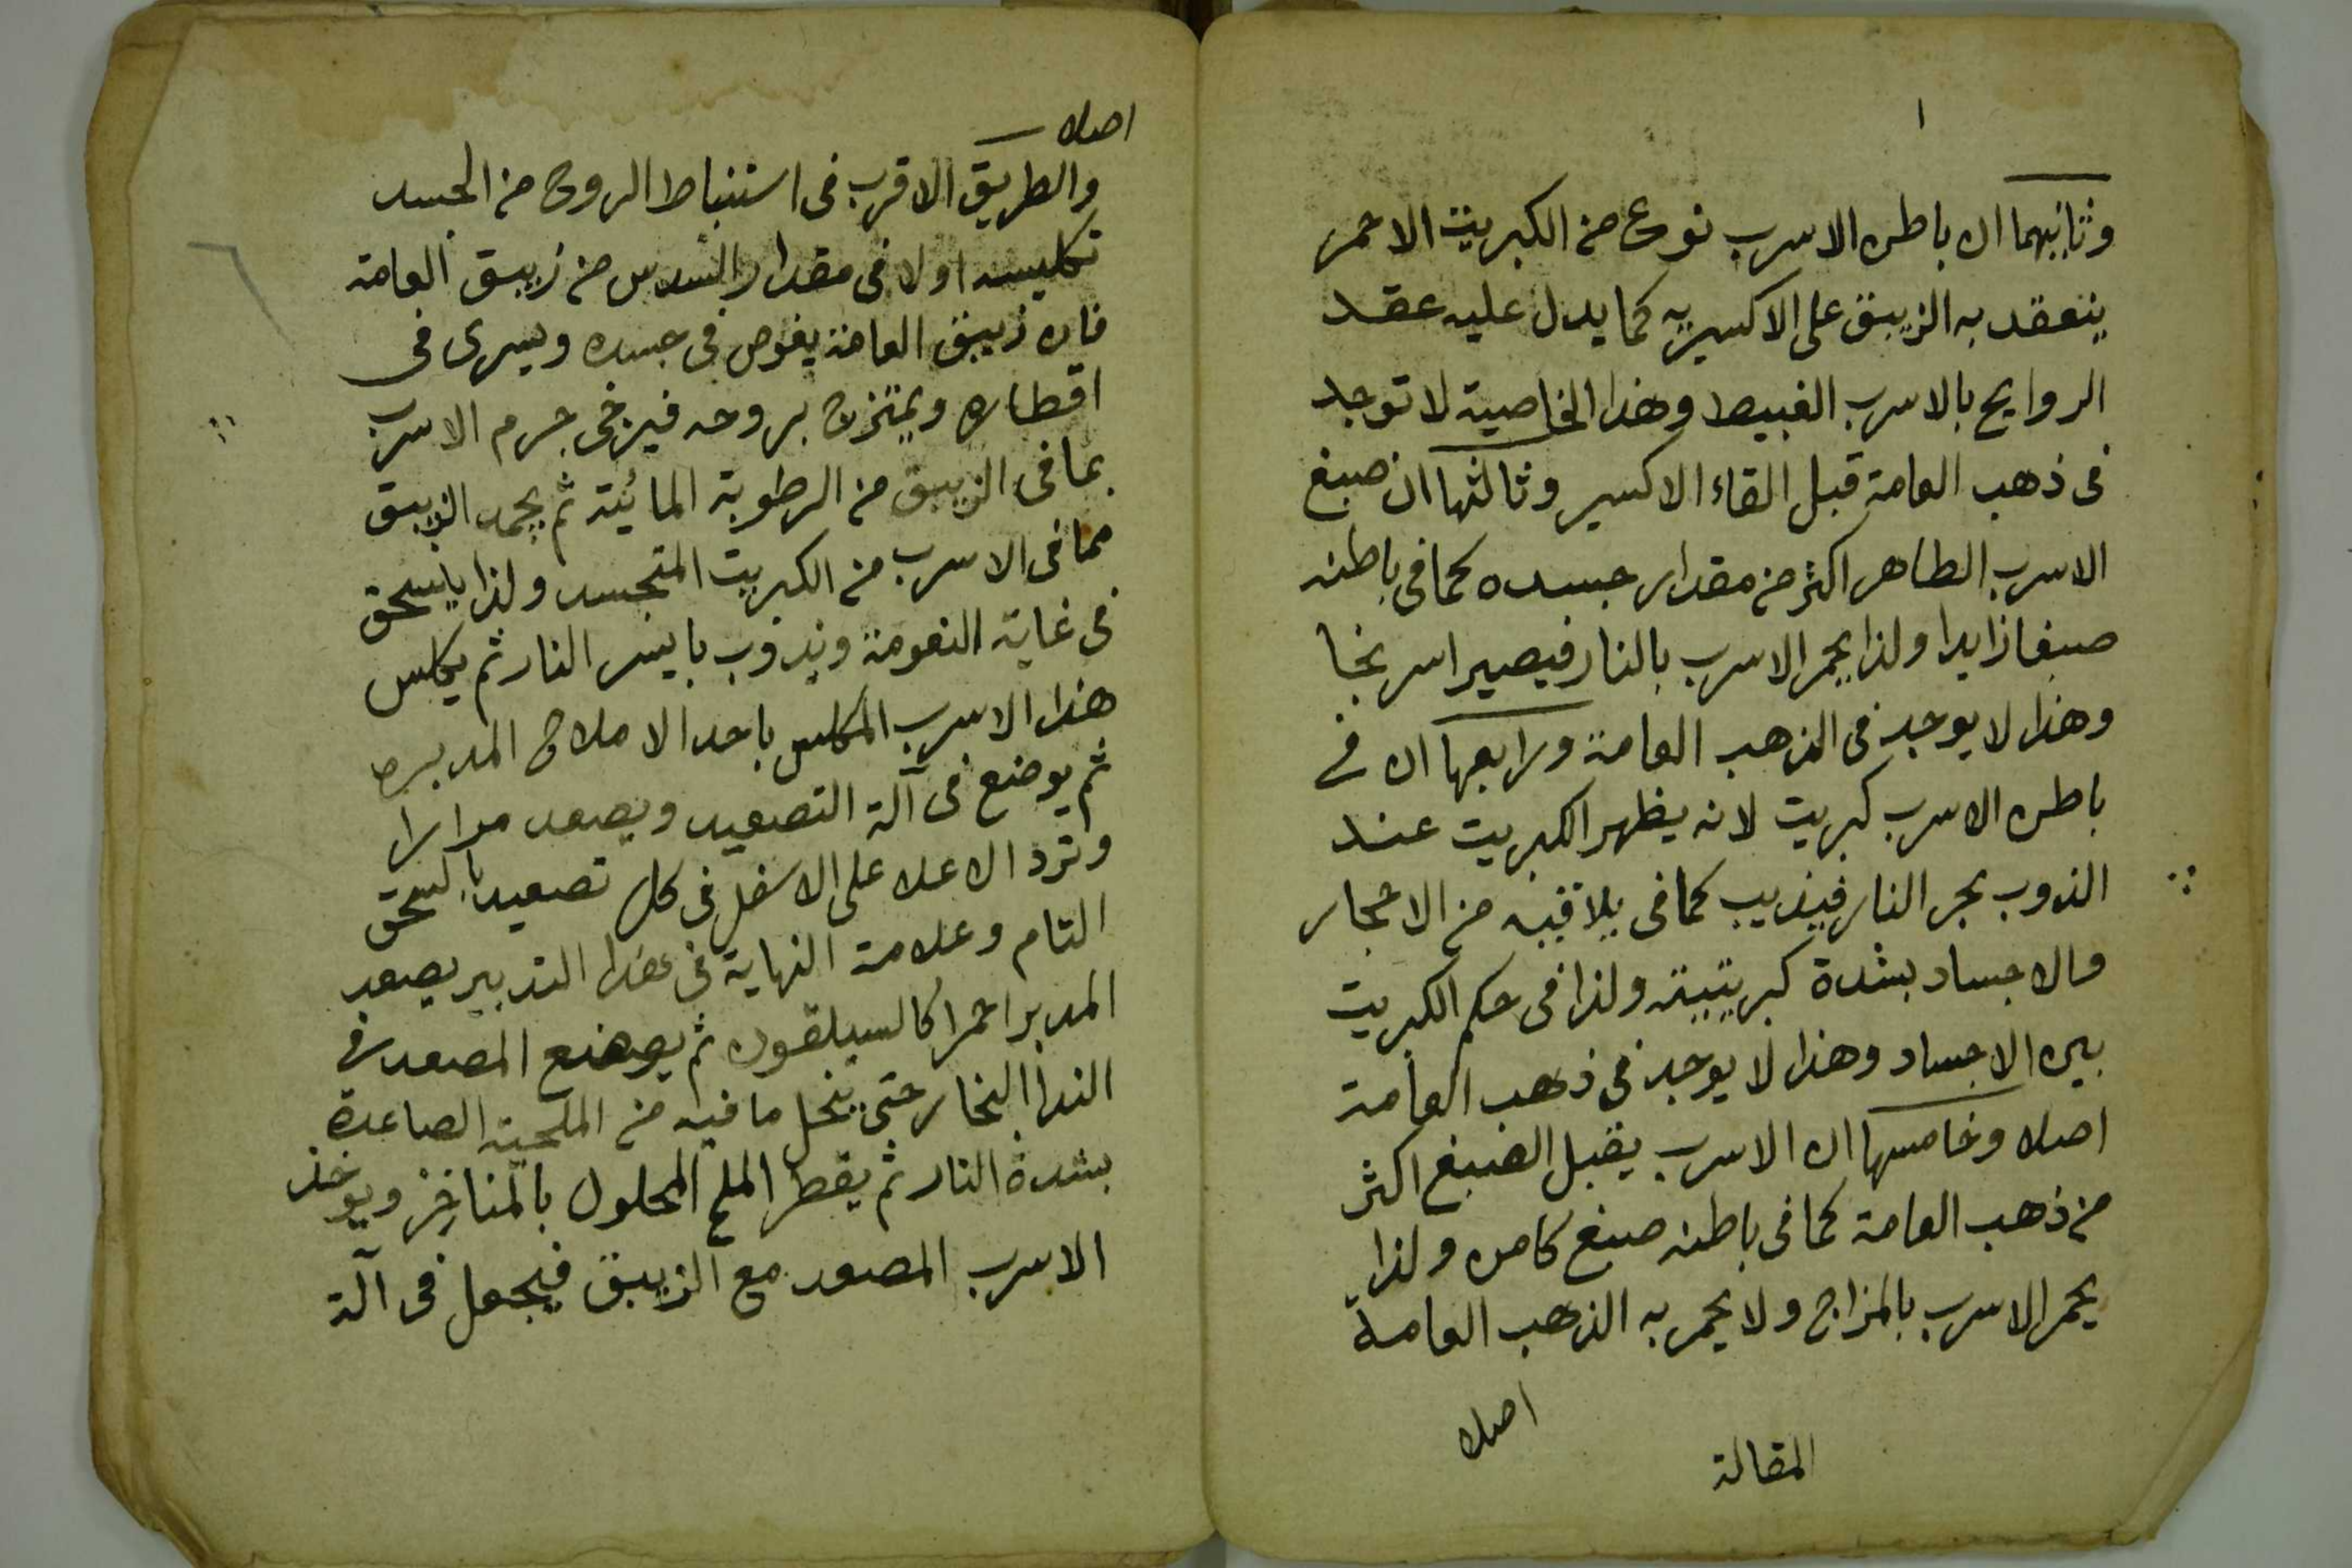 وثانيهما ان باطن الاسرب نوع من الكبريت الاحمر
ينعقد به الزيبق على الاكسيريه كما يدل عليه عقد
الروايح بالاسرب الغبيط وهذا الخاصية لا توجد
فى ذهب العامة قبل القاء الاكسير وثالثها ان صبغ
الاسرب الطاهر اكثر من مقدار جسده كما فى باطنه
صبغا زايدا ولذا يحمر الاسرب بالنار فيصير اسرنجا
وهذا لا يوجد فى الذهب العامة ورابعها ان فى
باطن الاسرب كبريت لانه يظهر الكبريت عند
الذوب بحر النار فيذيب كما فى يلاقيه من الاحجار
والاجساد بشدة كبريتيته ولذا فى حكم الكبريت
بين الاجساد وهذا لا يوجد فى ذهب العامة
اصلا وخامسها ان الاسرب يقبل الصبغ اكثر
من ذهب العامة كما فى باطنه صبغ كامن ولذا
يحمر الاسرب بالمزاج ولا يحمر به الذهب العامة
اصلا
المقالة
اصلا
والطريق الاقرب فى استنباط الروح من الجسد
تكليسه اولا فى مقدار السدس من زيبق العامة
فان زيبق العامة يغوص فى جسده ويسرى فى
اقطاره ويمتزج بروحه فيرخى جرم الاسرب
بما فى الزيبق من الرطوبة المائية ثم يجمد الزيبق
مما فى الاسرب من الكبريت المتجسد ولذا يا يسحق
فى غاية النعومة ويذوب بايسر النار ثم يكلس
هذا الاسرب المكلس باحد الاملاح المدبره
ثم يوضع فى آلة التصعيد ويصعد مرارا
وترد الاعلا على الاسفل فى كل تصعيد بالسحق
التام وعلامة النهاية فى هذا التدبير يصعد
المدبر احمرا كالسيلقون ثم يوضع المصعد فى
الندا البخار حتى ينحل ما فيه من الملحية الصاعدة
بشدة النار ثم يقطر الملح المحلول بالمناخز ويوخذ
الاسرب المصعد مع الزيبق فيجعل فى آلة